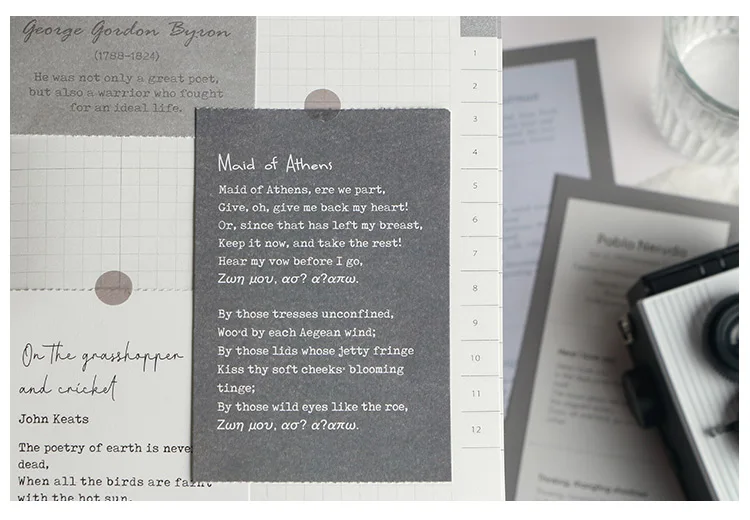 George Gordon Byron
(1788-1824)
He was not only a great poet,
but also a warrior who fought
for an ideal life.
Maid of Athens
Maid of Athens, ere we part,
Give, oh, give me back my heart!
Or, since that has left my breast,
Keep it now, and take the rest!
Hear my vow before I go,
Ζωη μου, ασ? α?απω.
By those tresses unconfined,
Woo·d by each Aegean wind;
By those lids whose jetty fringe
Kiss thy soft cheeks· blooming
tinge;
By those wild eyes like the roe,
Ζωη μου, ασ? α?απω.
On the grasshopper
and cricket
John Keats
The poetry of earth is neve
dead,
When all the birds are faint
with the hot sun,
1
2
3
4
5
6
7
8
9
10
11
12
Pablo Neruda